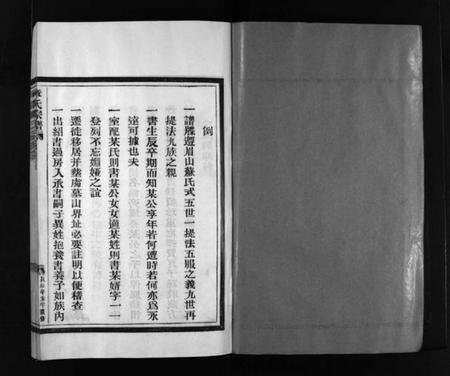 例
一譜牒遵眉山蘇氏式五世一提法五服之義九世再
提法九族之親
一書生辰卒期而知某公享年若何遭時若何亦為永
遠可據也夫
一室配某氏則書某公女女適某姓則書某婿字一一
登列不忘姻婭之誼
一遷徙移居并塟處墓山界址必要註明以便稽查
一出紹書過房入承書嗣子異姓抱養書養子如族內